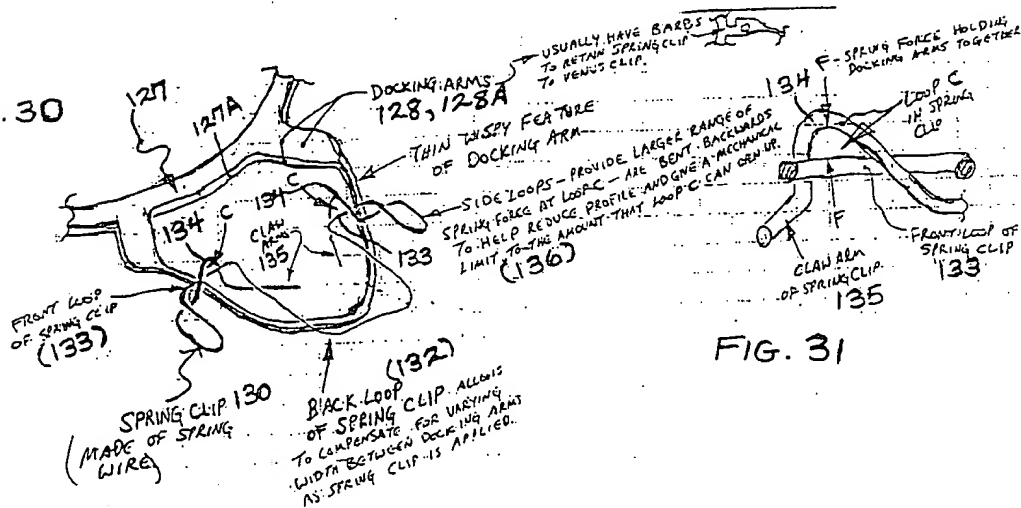 .30
127
127A
DOCKING ARMS
128, 128A
USUALLY HAVE BARBS
TO RETAIN SPRING CLIP
TO VENUS CLIP.
THIN WISPY FEATURE
OF DOCKING ARM
SIDE LOOPS - PROVIDE LARGER RANGE OF
SPRING FORCE AT LOOP C - ARE BENT BACKWARDS
TO HELP REDUCE PROFILE AND GIVE A MECHANICAL
LIMIT TO THE AMOUNT THAT LOOP C CAN OPEN UP.
(136)
134
C
134
C
CLAW
ARMS
135
133
FRONT LOOP
OF SPRING CLIP
(133)
SPRING CLIP 130
(MADE OF SPRING
WIRE)
(132)
BACK LOOP
OF SPRING CLIP ALLOWS
TO COMPENSATE FOR VARYING
WIDTH BETWEEN DOCKING ARMS
AS SPRING CLIP IS APPLIED.
134
F - SPRING FORCE HOLDING
DOCKING ARMS TOGETHER
LOOP C
IN SPRING
CLIP
F
CLAW ARM
OF SPRING CLIP
135
FRONT LOOP OF
SPRING CLIP
133
FIG. 31